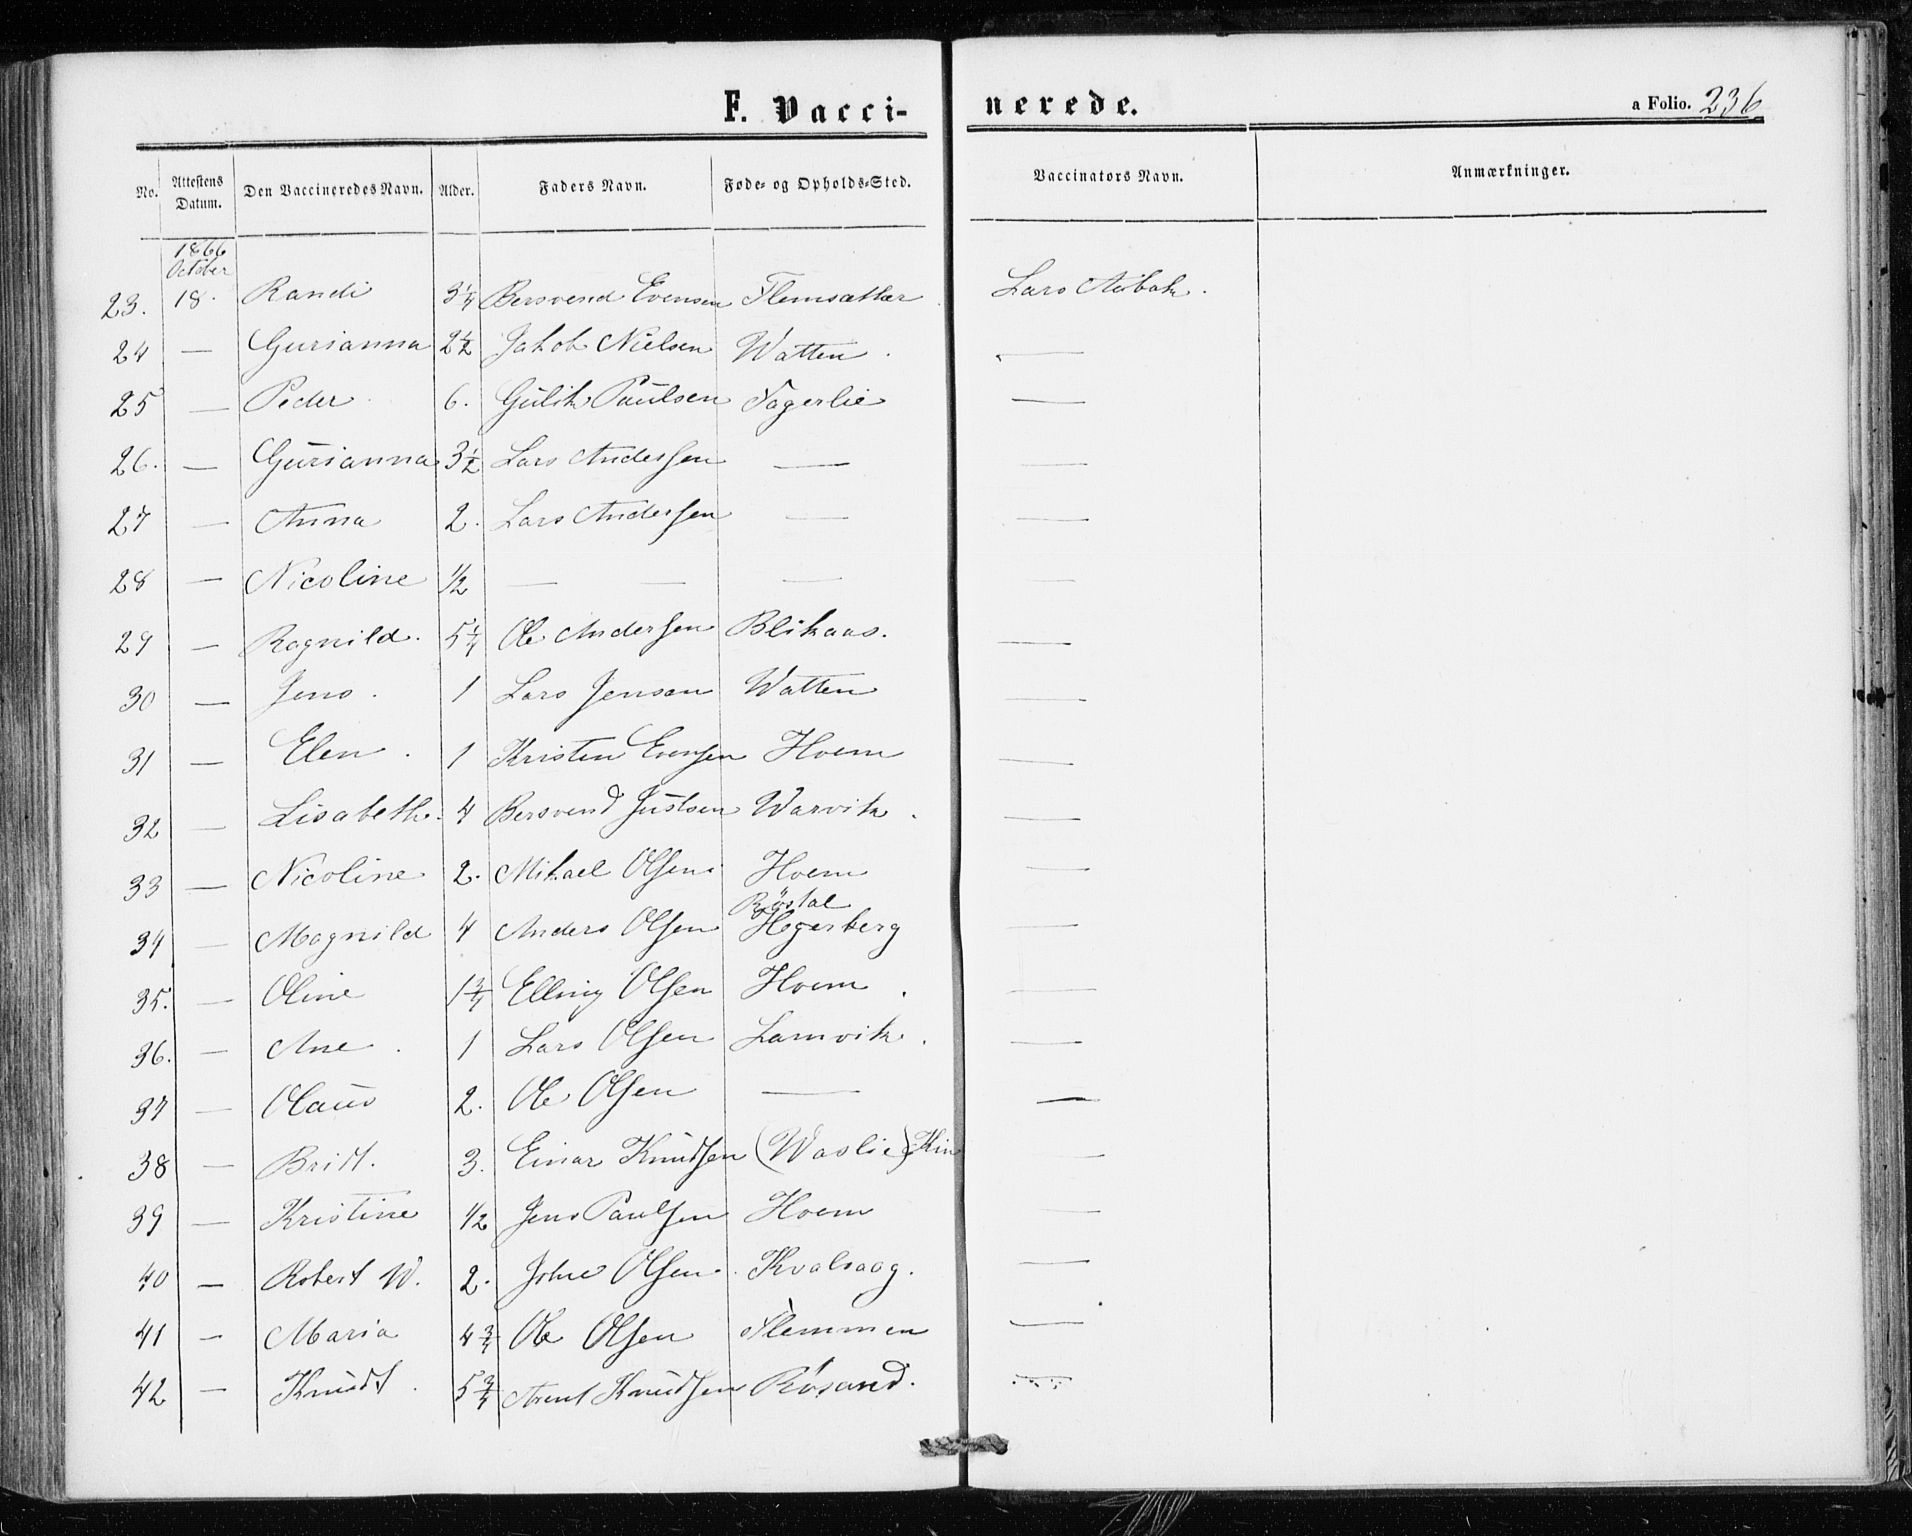 F. Vacci-
nerede.
a Folio. 236
No. Attestens Datum. Den Vaccineredes Navn. Alder. Faders Navn. Føde- og Opholds-Sted. Vaccinators Navn. Anmærkninger.
1866
October
23. 18. Randi 3 1/4 Bersvend Evensen Flemsæther Lars Aübak.
24 — Gurianna 2 1/2 Jakob Nielsen Watten. —
25 — Peder. 6. Gülik Paülsen Fagerlie —
26. — Gürianna 3 1/2 Lars Anderssen — —
27 — Anna 2. Lars Andersen — —
28 — Nicoline 1/2 — — — —
29 — Ragnild. 5 1/4 Ole Andersen Blikaas. —
30 — Jens. 1 Lars Jensen Watten —
31 — Elen. 1 Kristen Evensen Hoem —
32 — Lisabeth. 4 Bersvend Jüstsen Warvik. —
33 — Nicoline 2. Mikael Olsen Hoem —
Röstal
34 — Magnild 4 Anders Olsen Hegerberg —
35. — Oline 1 3/4 Elling Olsen Hoem. —
36. — Ane. 1 Lars Olsen Lamvik. —
37 — Olaüs 2. Ole Olsen — —
38 — Britt. 3. Einar Knüdsen (Waslie) Kin —
39 — Kristine 1/2 Jens Paulsen Hoem —
40 — Robert W. 2. John Olsen. Kvalsaag. —
41 — Maria 4 3/4 Ole Olsen Flemmen —
42 — Knüdt. 5 3/4 Arent Knüdsen Rösand. —